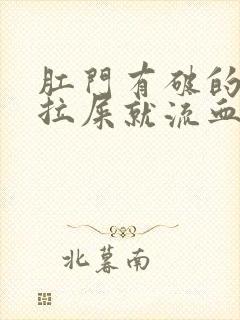 肛門有破的
拉屎就流血
北暮南